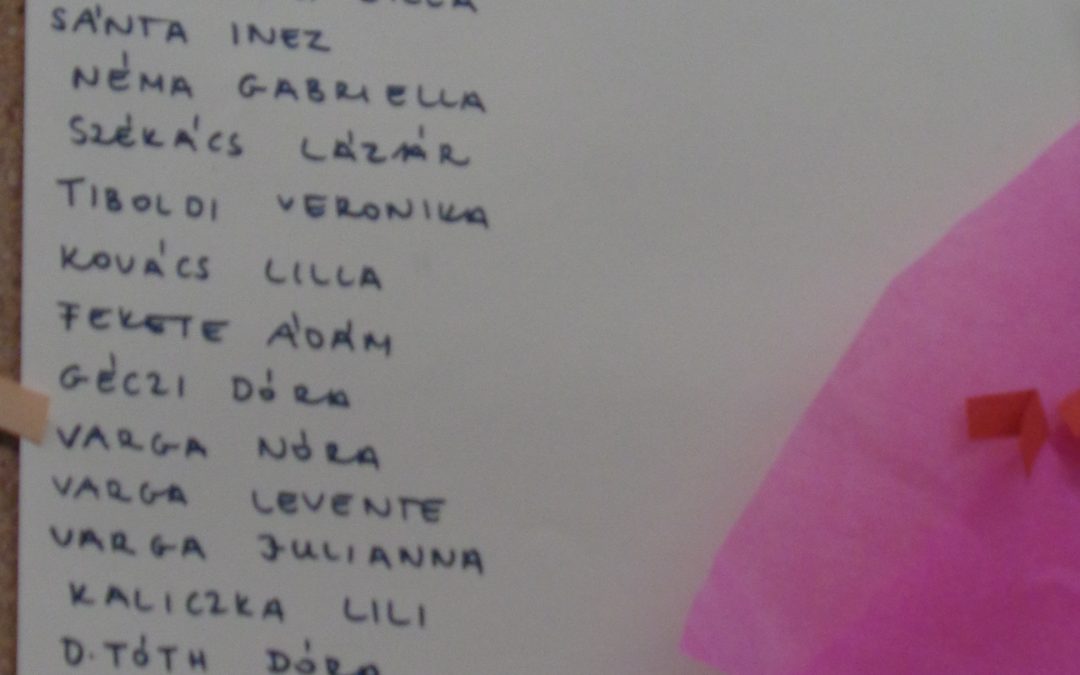 SÁNTA INEZ
NÉMA GABRIELLA
SZÉKÁCS LÁZÁR
TIBOLDI VERONIKA
KOVÁCS LILLA
FEKETE ÁDÁM
GÉCZI DÓRA
VARGA NÓRA
VARGA LEVENTE
VARGA JULIANNA
KALICZKA LILI
D. TÓTH DÓRA